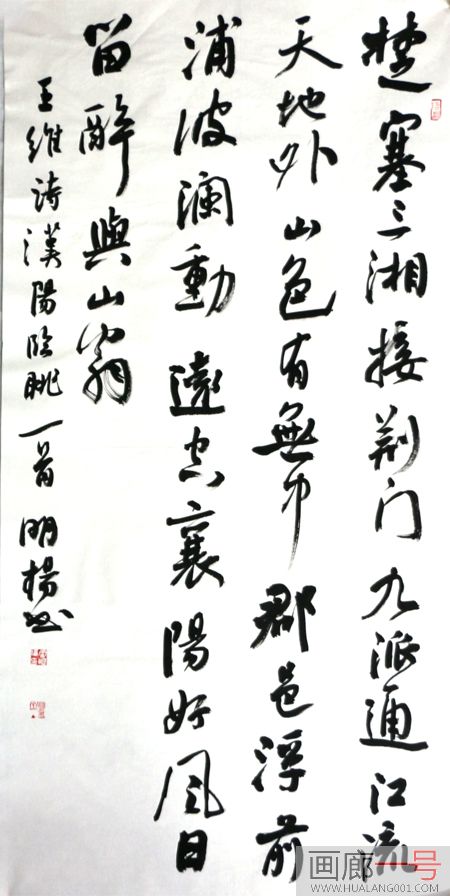 楚塞三湘接荆门九派通江流
天地外山色有無中郡邑浮前
浦波澜動遠空襄陽好风日
留醉與山翁
王维诗漢陽临眺一首 明楊书
画廊一号
WWW.HUALANG001.COM